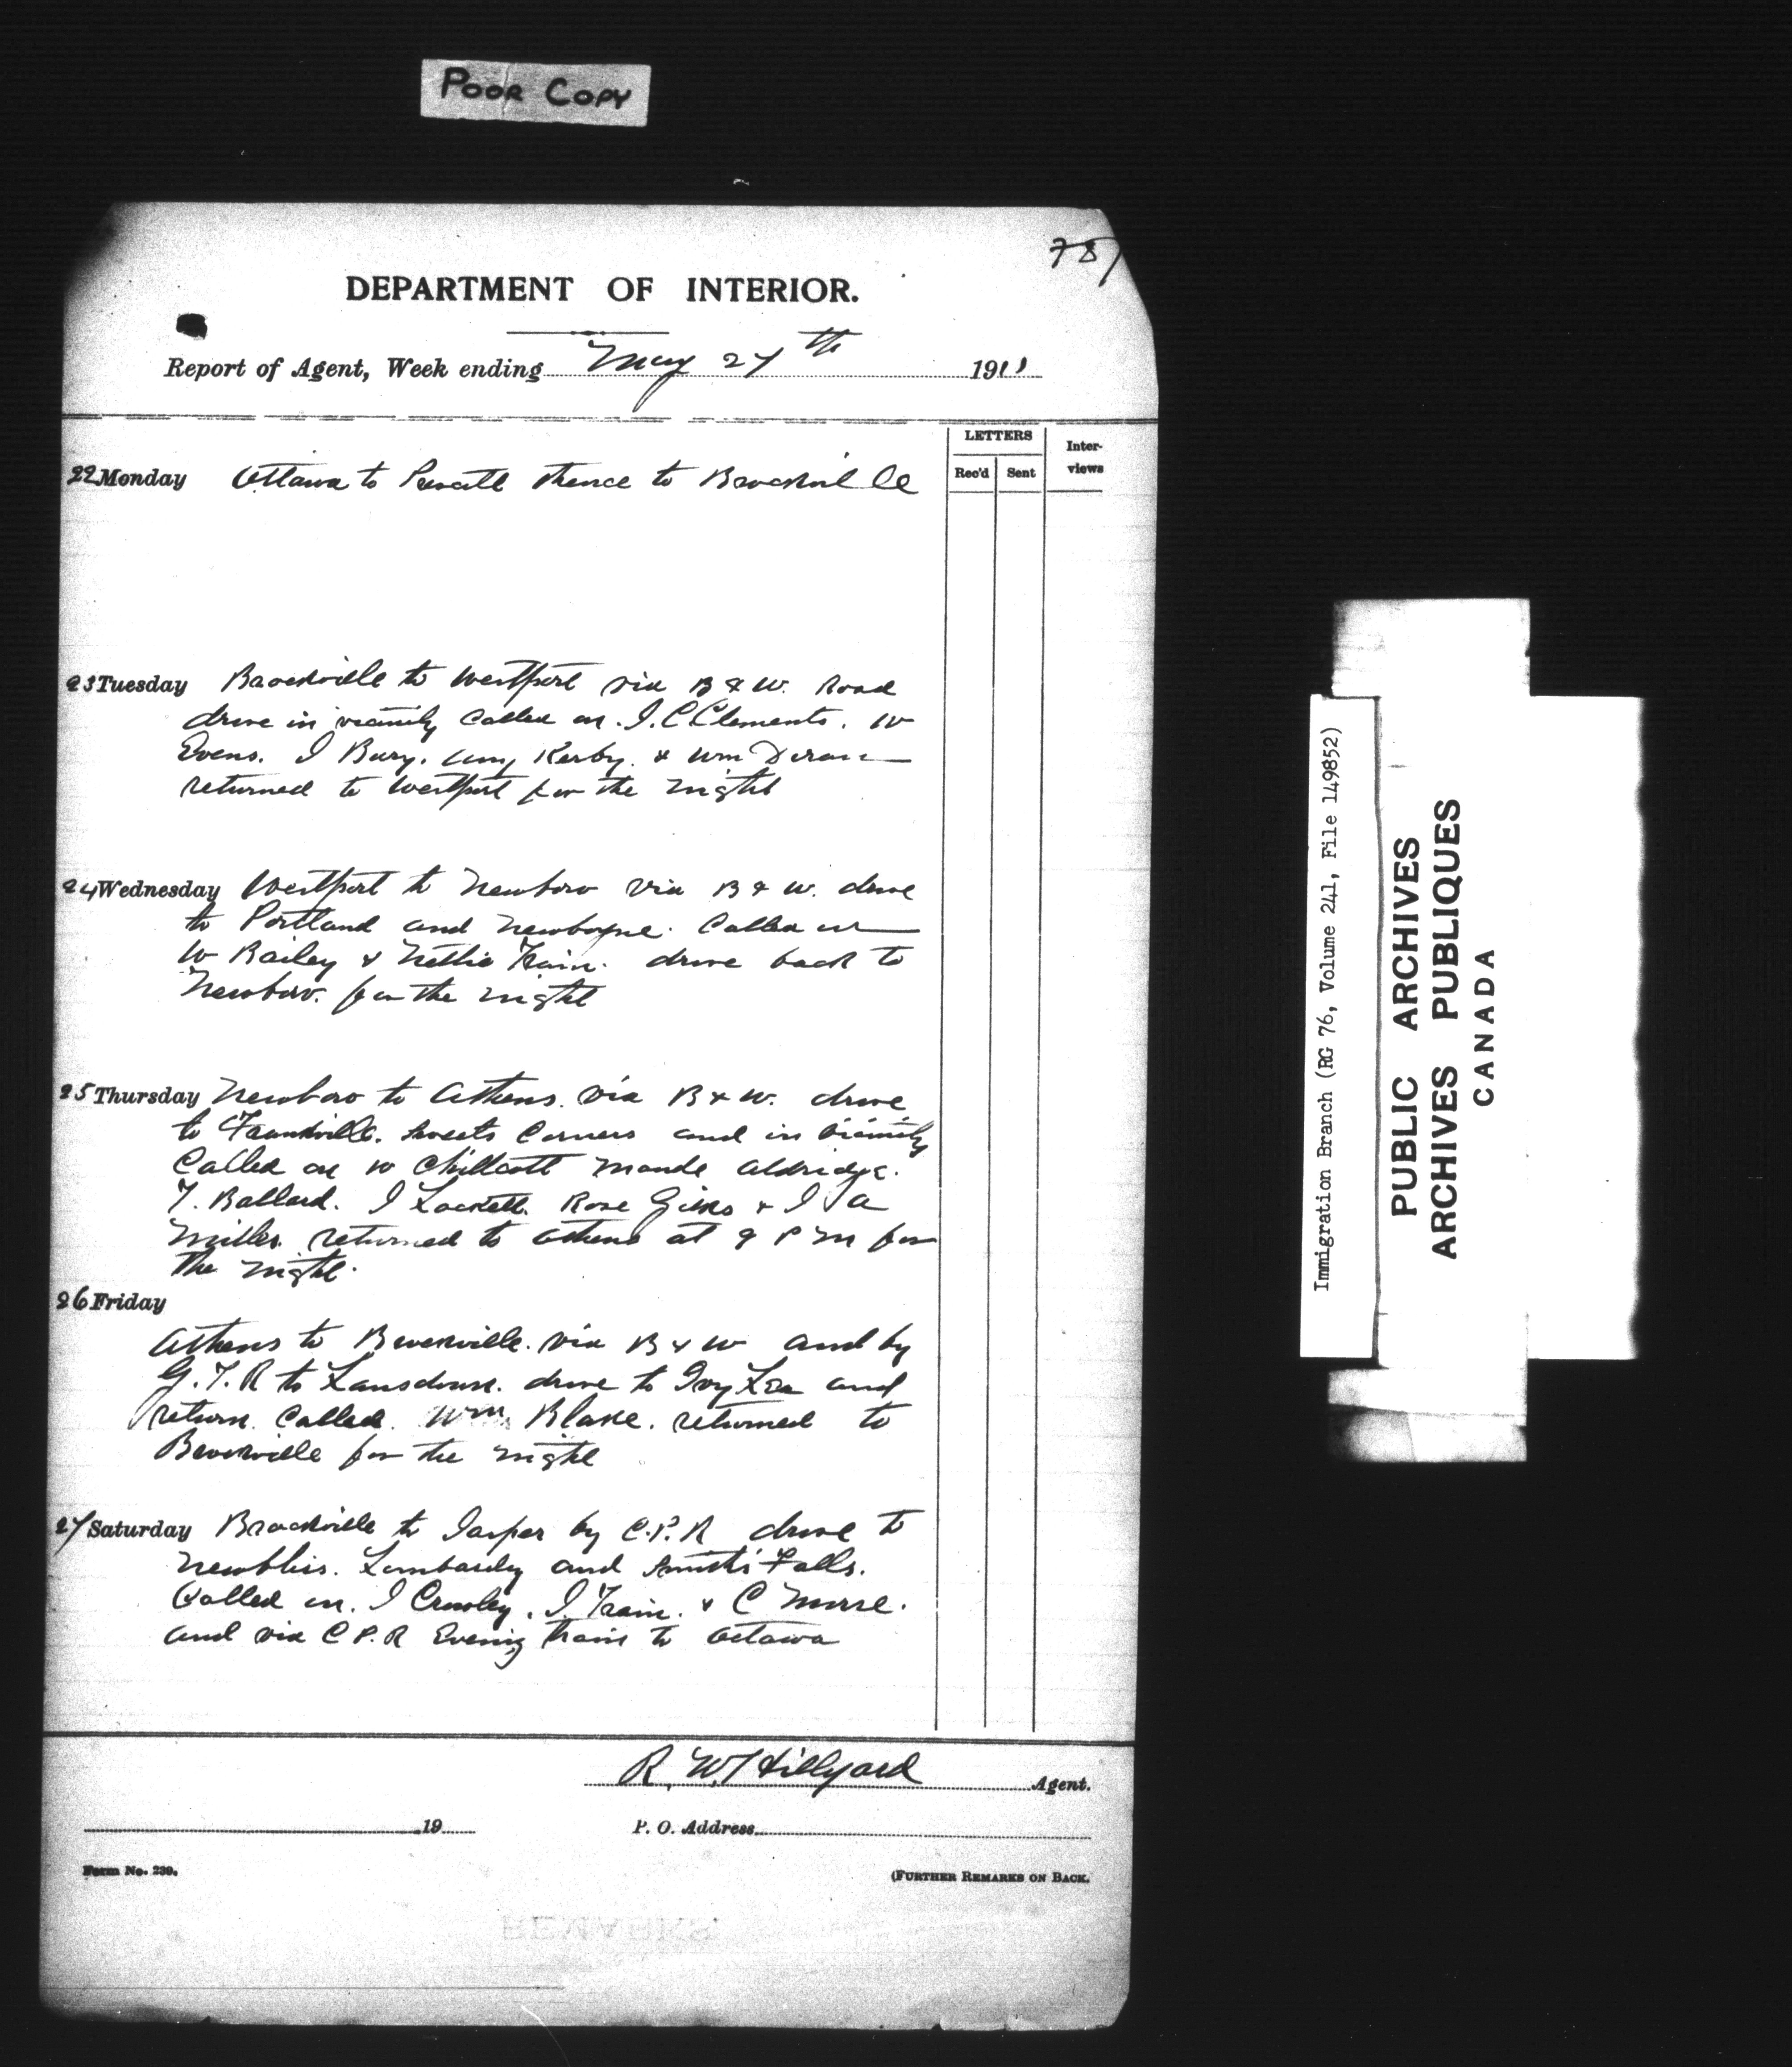 POOR COPY
787
DEPARTMENT OF INTERIOR.
Report of Agent, Week ending May 27th 1911
LETTERS
Rec'd Sent
Inter-views
22 Monday Ottawa to thence to Brockville
23 Tuesday Brockville to Westport via B & W. Road
drive in vicinity Called on. I. C Clements. W
Evens. I Bury. Amy Kerby. & Wm Doran
returned to Westport for the night
24 Wednesday Westport to Newboro via B & W. drive
to Portland and Newboyne. Called on
W Bailey & Nettie Train. drive back to
Newboro. for the night
25 Thursday Newboro to Athens. via B & W. drive
to Frankville. Sweets Corners and in vicinity
Called on W Chillcott Maude Aldridge.
T. Ballard. I Lockett. Rose Gilks & I A
Miller. returned to Athens at 9 P M for
the night.
26 Friday
Athens to Brockville. via B & W and by
G. T. R to Lansdown. drive to Ivy Lea and
return. Called. Wm Blake. returned to
Brockville for the night
27 Saturday Brockville to Jasper by C. P. R drive to
Newbliss. Lombardy and Smiths Falls.
Called on. I Crosley. I. Train. & C Morse.
and via C P. R Evening train to Ottawa
R. W. Hillyard Agent.
19
P. O. Address
Form No. 239.
(FURTHER REMARKS ON BACK.
Immigration Branch (RG 76, Volume 241, File 149852)
PUBLIC ARCHIVES
ARCHIVES PUBLIQUES
CANADA